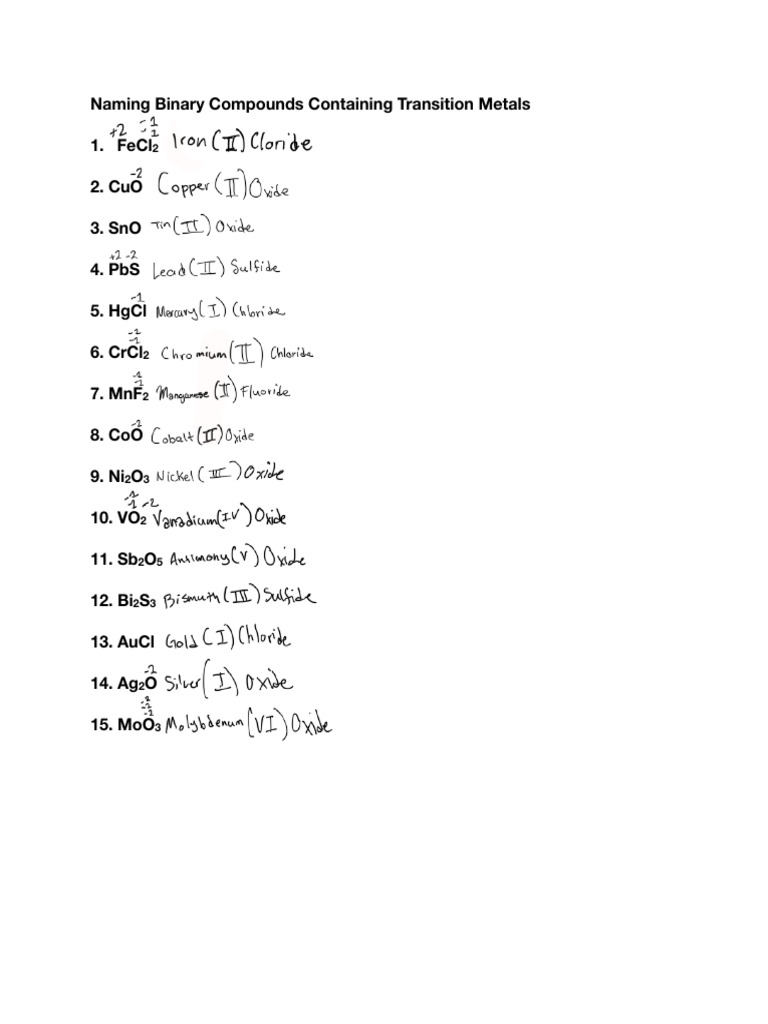 Naming Binary Compounds Containing Transition Metals
+2 -1 -1
1. FeCl₂ Iron (II) Cloride
-2
2. CuO Copper (II) Oxide
3. SnO Tin (II) Oxide
+2 -2
4. PbS Lead (II) Sulfide
-1
5. HgCl Mercury (I) Chloride
-1
-1
6. CrCl₂ Chromium (II) Chloride
-1
-1
7. MnF₂ Manganese (II) Fluoride
-2
8. CoO Cobalt (II) Oxide
9. Ni₂O₃ Nickel (III) Oxide
10. VO₂ Vanadium (IV) Oxide
11. Sb₂O₅ Antimony (V) Oxide
12. Bi₂S₃ Bismuth (III) Sulfide
13. AuCl Gold (I) Chloride
-2
14. Ag₂O Silver (I) Oxide
-2
-2
-2
15. MoO₃ Molybdenum (VI) Oxide